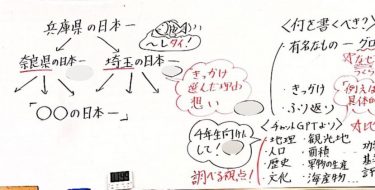 兵庫県の日本一
〜しタイ!
奈良県の日本一
埼玉の日本一
「〇〇の日本一」
きっかけ
選んだ理由
想い
4年生向けに
して!
調べる視点!
<何を書くべき?>
有名なもの ー グロ
きっかけ
ふり返り
「例えば
具体的
<チャットGPTより>
・地理 ・観光地
・人口 ・面積
・歴史 ・果物の生産
・文化 ・海産物…